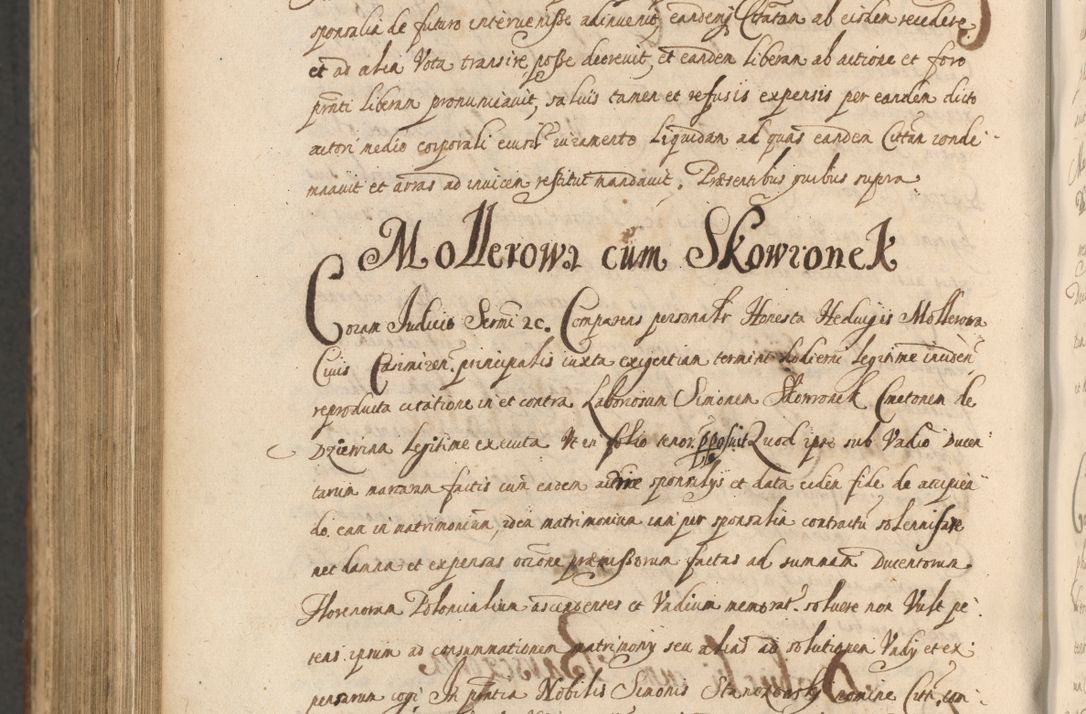 sponsalia de futuro intervenisse adinvenit, eandemq̃ Citatam ab eisdem recedere,
et ad alia Vota transire posse decrevit, et eandem liberam ab actione et foro
pr̃nti liberam pronunciavit, salvis tamen et refusis expensis per eandem dicto
actori medio corporali eius iuramento liquidan ad quas eandem Citt̃am conde-
mnavit et arras ad invicem restitui mandavit, Præsentibus quibus supra
Mollerowa cum Skowronek
Coram Judicio Sermi 2c. Comparens personalr Honesta Hedvigis Mollerowa
Civis Casimiren̄. principalis iuxta exigentiam termini hodierni legitime inciden̄
reproducta citatione in et contra Laboriosum Simonem Skowronek Cmetonem de
legitime executa tenor. pposuit Quod ipse sub Vadio Ducen-
tarum marcarum factis cum eadem actrice sponsalijs et data eidem fide de accipien
do. eam in matrimonium, idem matrimonium iam per sponsalia contractũ solennisare
nec damna et expensas occ̃one præmissorum factas ad summam Ducentorum
Florenorum Polonicalium ascendentes et Vadium memorat. solvere non Vult pe-
tens ipsum ad consummationem matrimonij seu alias ad solutionem Vadij et ex-
pensarum cogi In pñtia Nobilis Simonis nomine Citt̃i. com-